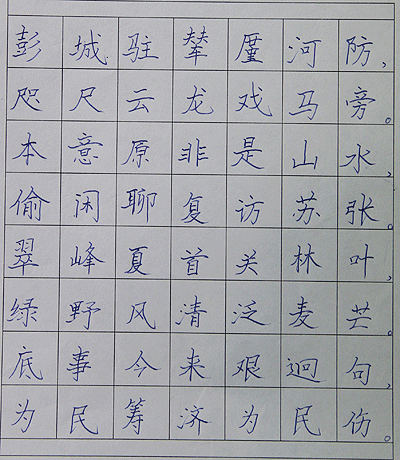 彭城驻辇厪河防,
咫尺云龙戏马旁。
本意原非是山水,
偷闲聊复访苏张。
翠峰夏首关林叶,
绿野风清泛麦芒。
底事今来艰迥句,
为民筹济为民伤。